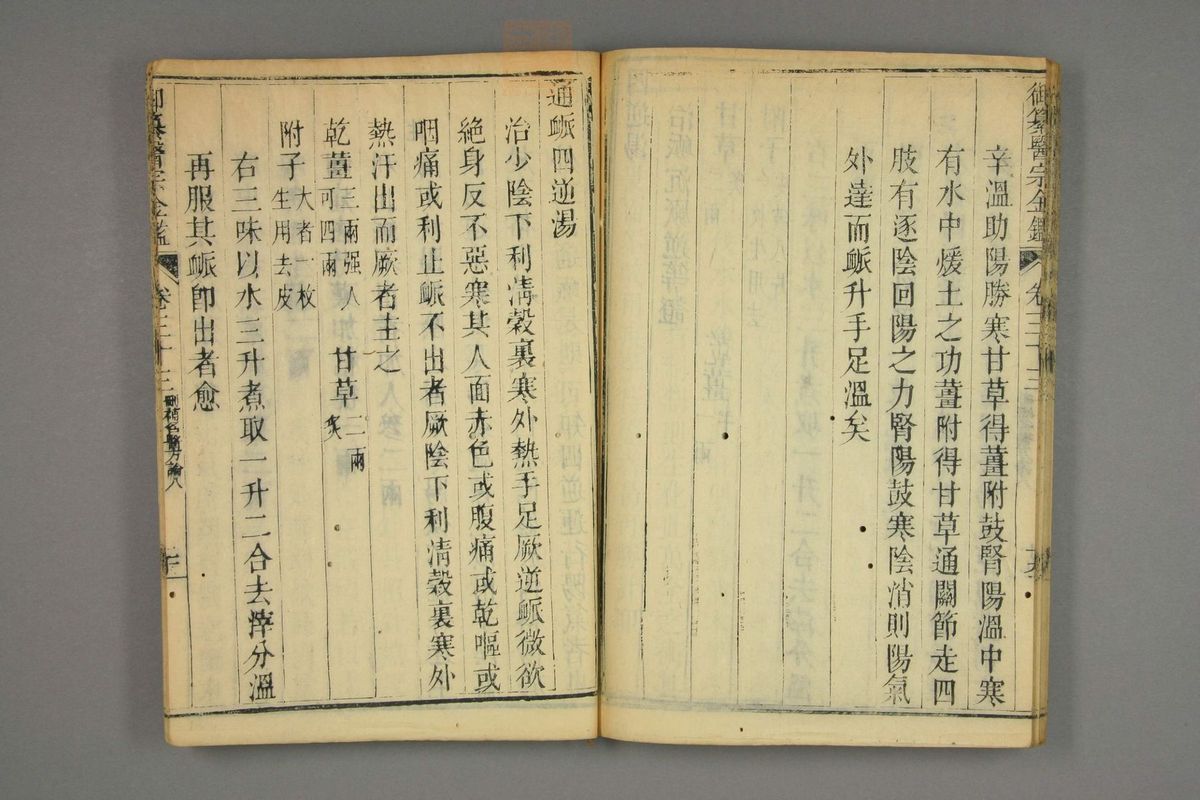 御纂醫宗金鑑 卷三十三
辛溫助陽勝寒甘草得薑附鼓腎陽溫中寒
有水中煖土之功薑附得甘草通關節走四
肢有逐陰回陽之力腎陽鼓寒陰消則陽氣
外達而脈升手足溫矣
通脈四逆湯
治少陰下利清穀裏寒外熱手足厥逆脈微欲
絶身反不惡寒其人面赤色或腹痛或乾嘔或
咽痛或利止脈不出者厥陰下利清穀裏寒外
熱汗出而厥者主之
乾薑三兩强人可四兩 甘草三兩炙
附子大者一枚生用去皮
右三味以水三升煮取一升二合去滓分溫
再服其脈卽出者愈
御纂醫宗金鑑 卷三十三 刪補名醫方論八